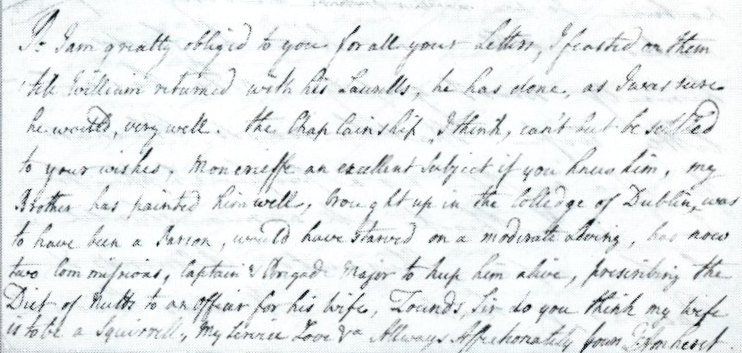 Ps I am greatly obliged to you for all your Letters, I feasted on them
till William returned with his Laurells, he has done, as I was sure
he would, very well. the Chaplainship, I think, can't but be settled
to your wishes, Moncrieffe an excellent Subject if you knew him, my
Brother has painted him well, brought up in the Colledge of Dublin, was
to have been a Parson, would have starved on a moderate Living, has now
two Commissions, Captain & Brigade Major to keep him alive, prescribing the
Diet of Nutts to an officer for his wife, Zounds Sir do you think my wife
is to be a Squirrell, my sincere Love &a Allways Affectionately Yours J: Amherst.